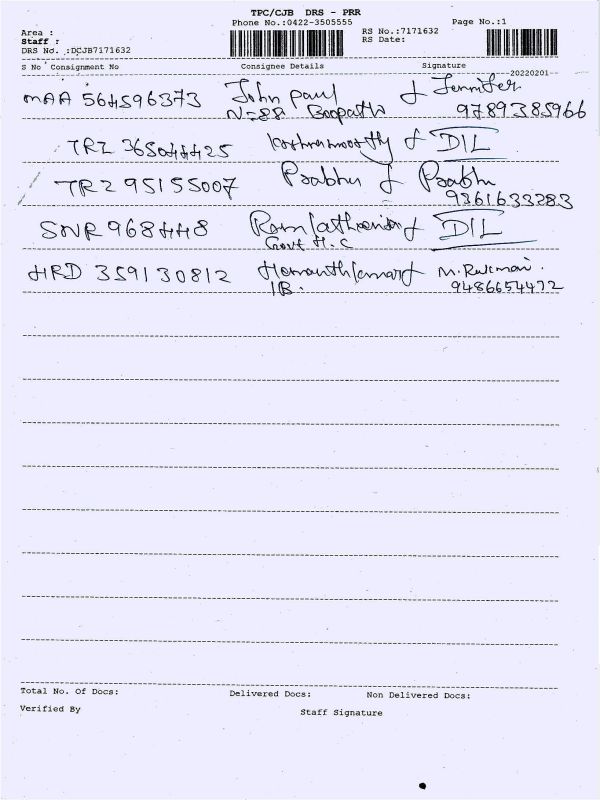 TPC/CJB DRS - PRR
Phone No.:0422-3505555
Page No.:1
Area :
Staff :
DRS No. :DCJB7171632
RS No.:7171632
RS Date:
S No Consignment No Consignee Details Signature
20220201
MAA 564596373 John Paul & Jennifer
N=88 Boopathi 9789385966
TRZ 365044425 & DIL
TRZ 95155007 Prabhu & Prabhu
9361633283
SNR 968448 & DIL
Govt H.C
HRD 359130812 Hemanthkumar & M. Rukmani.
IB. 9486654472
Total No. Of Docs: Delivered Docs: Non Delivered Docs:
Verified By Staff Signature